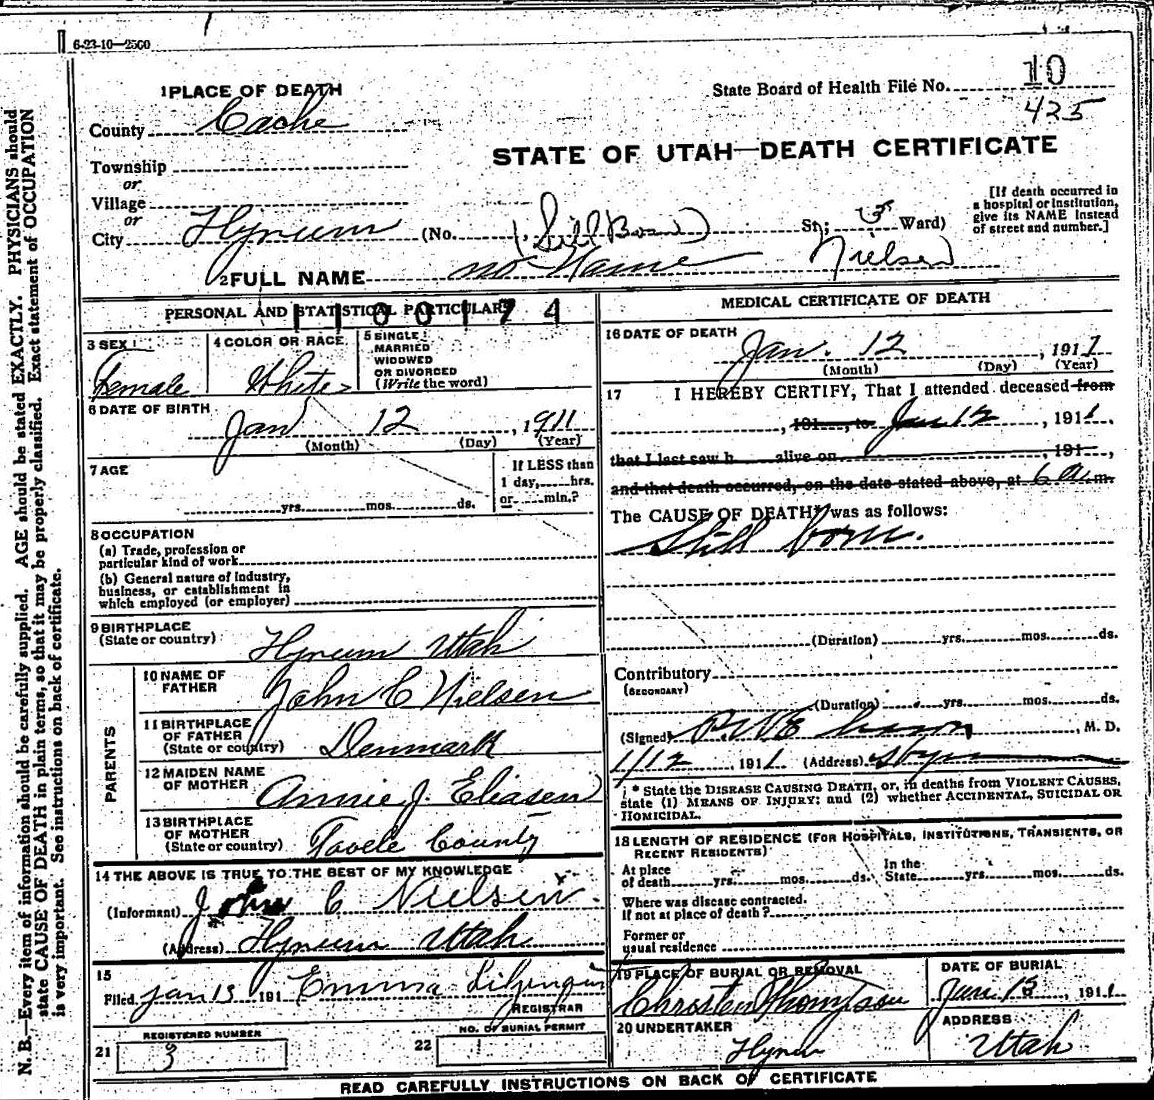 6-23-10—2500
1 PLACE OF DEATH
State Board of Health File No. 10
425
County Cache
STATE OF UTAH—DEATH CERTIFICATE
Township
or
Village
or
City Hyrum (No. (Still Born) St; 3 Ward)
[If death occurred in
a hospital or institution,
give its NAME instead
of street and number.]
2 FULL NAME no Name Nielsen
PERSONAL AND STATISTICAL PARTICULARS
1100174
3 SEX
Female
4 COLOR OR RACE
White
5 SINGLE
MARRIED
WIDOWED
OR DIVORCED
(Write the word)
6 DATE OF BIRTH
Jan 12, 1911
(Month) (Day) (Year)
7 AGE
yrs. mos. ds.
If LESS than
1 day, hrs.
or min.?
8 OCCUPATION
(a) Trade, profession or
particular kind of work
(b) General nature of industry,
business, or establishment in
which employed (or employer)
9 BIRTHPLACE
(State or country) Hyrum Utah
PARENTS
10 NAME OF
FATHER John C Nielsen
11 BIRTHPLACE
OF FATHER
(State or country) Denmark
12 MAIDEN NAME
OF MOTHER Annie J. Eliasen
13 BIRTHPLACE
OF MOTHER
(State or country) Tooele County
14 THE ABOVE IS TRUE TO THE BEST OF MY KNOWLEDGE
(Informant) John C Nielsen
(Address) Hyrum Utah
15
Filed Jan 13 191 Emma
REGISTRAR
REGISTERED NUMBER
21 3
NO. OF BURIAL PERMIT
22
MEDICAL CERTIFICATE OF DEATH
16 DATE OF DEATH
Jan. 12, 1911
(Month) (Day) (Year)
17 I HEREBY CERTIFY, That I attended deceased from
, 191 , to Jan 12, 1911
that I last saw h alive on , 191 ,
and that death occurred, on the date stated above, at 6 a.m.
The CAUSE OF DEATH* was as follows:
Still born.
(Duration) yrs. mos. ds.
Contributory
(SECONDARY)
(Duration) yrs. mos. ds.
(Signed) , M. D.
1/12 1911. (Address) Hyrum
* State the DISEASE CAUSING DEATH, or, in deaths from VIOLENT CAUSES,
state (1) MEANS OF INJURY; and (2) whether ACCIDENTAL, SUICIDAL OR
HOMICIDAL.
18 LENGTH OF RESIDENCE (FOR HOSPITALS, INSTITUTIONS, TRANSIENTS, OR
RECENT RESIDENTS)
At place
of death yrs. mos. ds.
In the
State yrs. mos. ds.
Where was disease contracted.
If not at place of death?
Former or
usual residence
19 PLACE OF BURIAL OR REMOVAL
Christen Thompson
DATE OF BURIAL
Jan. 13, 1911
20 UNDERTAKER
Hyrum
ADDRESS
Utah
READ CAREFULLY INSTRUCTIONS ON BACK OF CERTIFICATE
N. B.—Every item of information should be carefully supplied. AGE should be stated EXACTLY. PHYSICIANS should
state CAUSE OF DEATH in plain terms, so that it may be properly classified. Exact statement of OCCUPATION
is very important. See instructions on back of certificate.